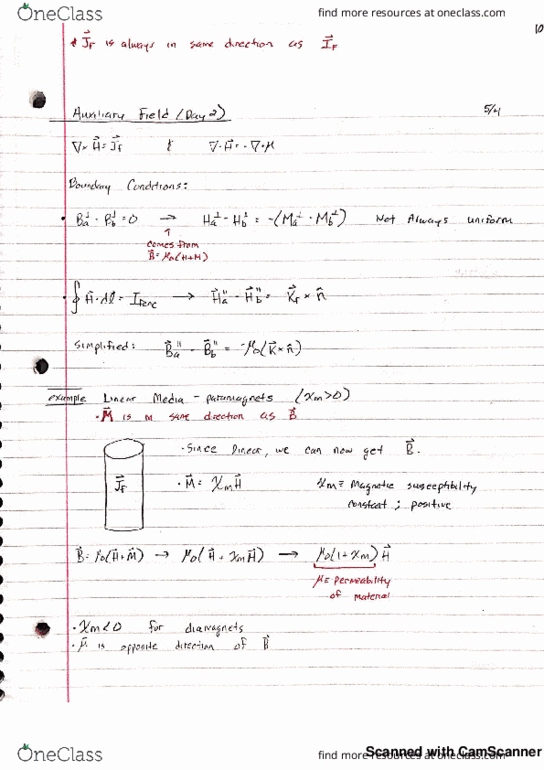 OneClass
find more resources at oneclass.com
10
* J⃗f is always in same direction as I⃗f
Auxiliary Field (Day 2) 5/4
∇×H⃗ = J⃗f & ∇·H⃗ = -∇·M
Boundary Conditions:
• Ba⊥ - Bb⊥ = 0 → Ha⊥ - Hb⊥ = -(Ma⊥ - Mb⊥) Not Always uniform
↑
comes from
B⃗ = μ0(H+M)
• ∮ H⃗·dl⃗ = Ifenc → H⃗a'' - H⃗b'' = K⃗f × n̂
Simplified: B⃗a'' - B⃗b'' = μ0(K⃗ × n̂)
example Linear Media - paramagnets (χm>0)
• M⃗ is in same direction as B⃗
• Since linear, we can now get B⃗.
J⃗f • M⃗ = χmH⃗ χm ≡ Magnetic susceptibility
constant ; positive
B⃗ = μ0(H⃗+M⃗) → μ0(H⃗ + χmH⃗) → μ0(1+χm)H⃗
μ ≡ permeability
of material
• χm<0 for diamagnets
• M⃗ is opposite direction of B⃗
OneClass
find more resources at oneclass.com
Scanned with CamScanner